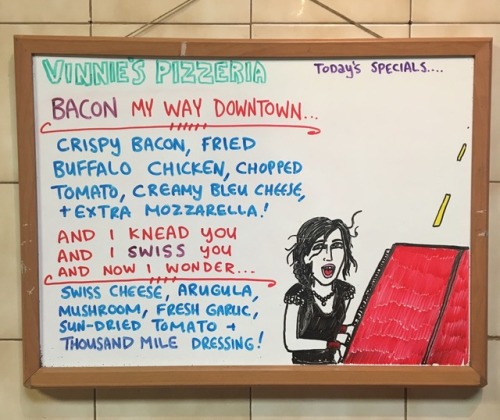 VINNIE'S PIZZERIA
TODAY'S SPECIALS....
BACON MY WAY DOWNTOWN...
CRISPY BACON, FRIED
BUFFALO CHICKEN, CHOPPED
TOMATO, CREAMY BLEU CHEESE,
+ EXTRA MOZZARELLA!
AND I KNEAD YOU
AND I SWISS YOU
AND NOW I WONDER...
SWISS CHEESE, ARUGULA,
MUSHROOM, FRESH GARLIC,
SUN-DRIED TOMATO +
THOUSAND MILE DRESSING!